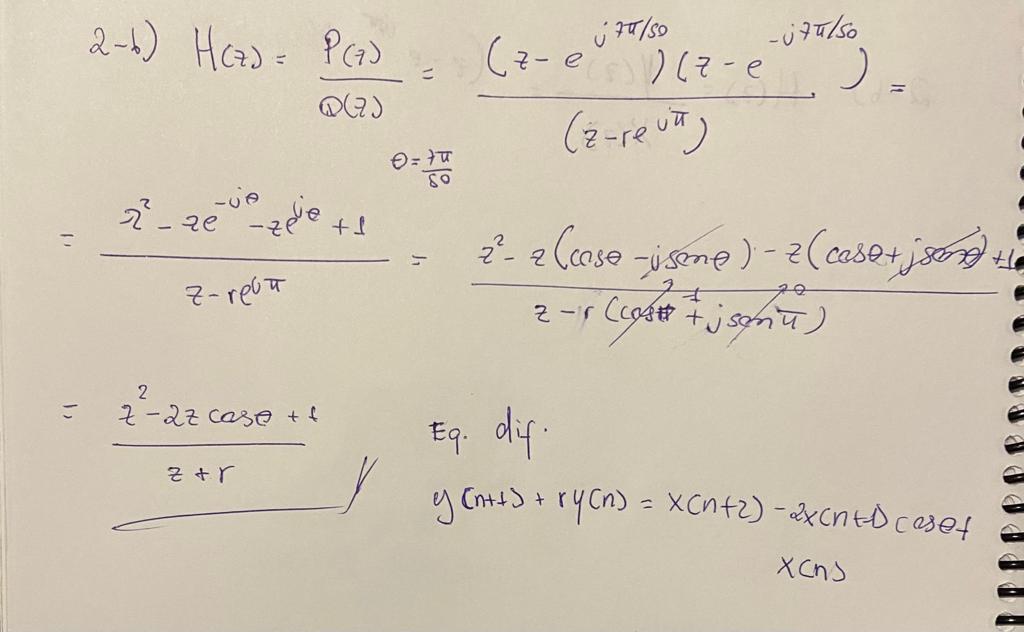 2-b) H(z) = P(z)/Q(z) = (z - e^{j7π/50})(z - e^{-j7π/50}) / (z - re^{jπ}) =
θ = 7π/50
= z² - ze^{-jθ} - ze^{jθ} + 1 / z - re^{jπ} = z² - z(cosθ - jsenθ) - z(cosθ + jsenθ) + 1 / z - r(cosπ + jsenπ)
= z² - 2z cosθ + 1 / z + r
Eq. dif.
y(n+1) + ry(n) = x(n+2) - 2x(n+1) cosθ +
x(n)